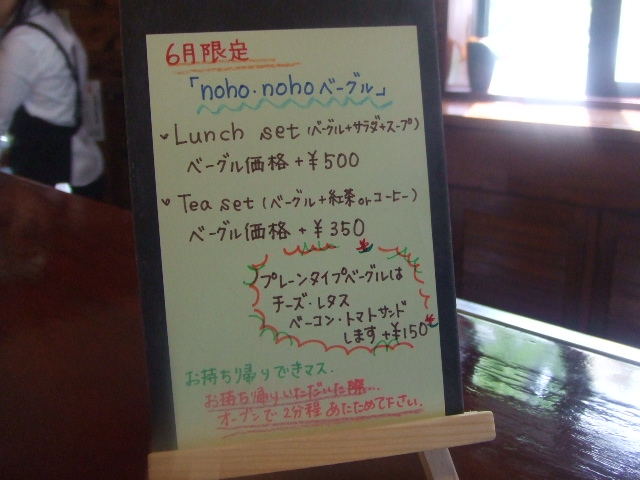 6月限定
「noho・nohoベーグル」
Lunch set (ベーグル+サラダ+スープ)
ベーグル価格+¥500
Tea set (ベーグル+紅茶orコーヒー)
ベーグル価格+¥350
プレーンタイプベーグルは
チーズ・レタス
ベーコン・トマトサンド
します+¥150
お持ち帰りできマス.
お持ち帰りいただいた際...
オーブンで2分程あたためて下さい.